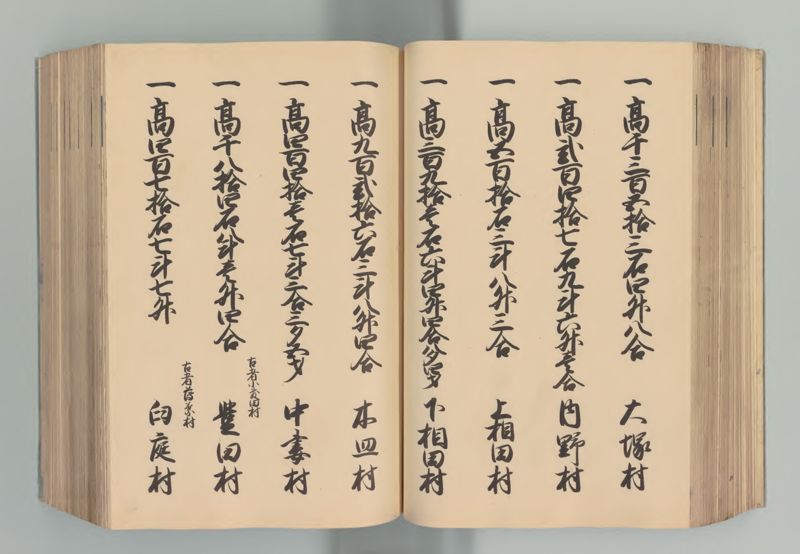 一高千三百五拾三石四升八合 大塚村
一高弐百四拾七石九斗六升壱合 内野村
一高五百拾石三斗八升三合 上相田村
一高三百九拾壱石六斗四升四合八夕四才 下相田村
一高九百弐拾六石三斗八升四合 木皿村
一高四百四拾壱石七斗三合三夕五才 中妻村
古者小田村
一高千八拾四石八斗壱升四合 豊田村
古者村
一高四百七拾石七斗七升 臼庭村